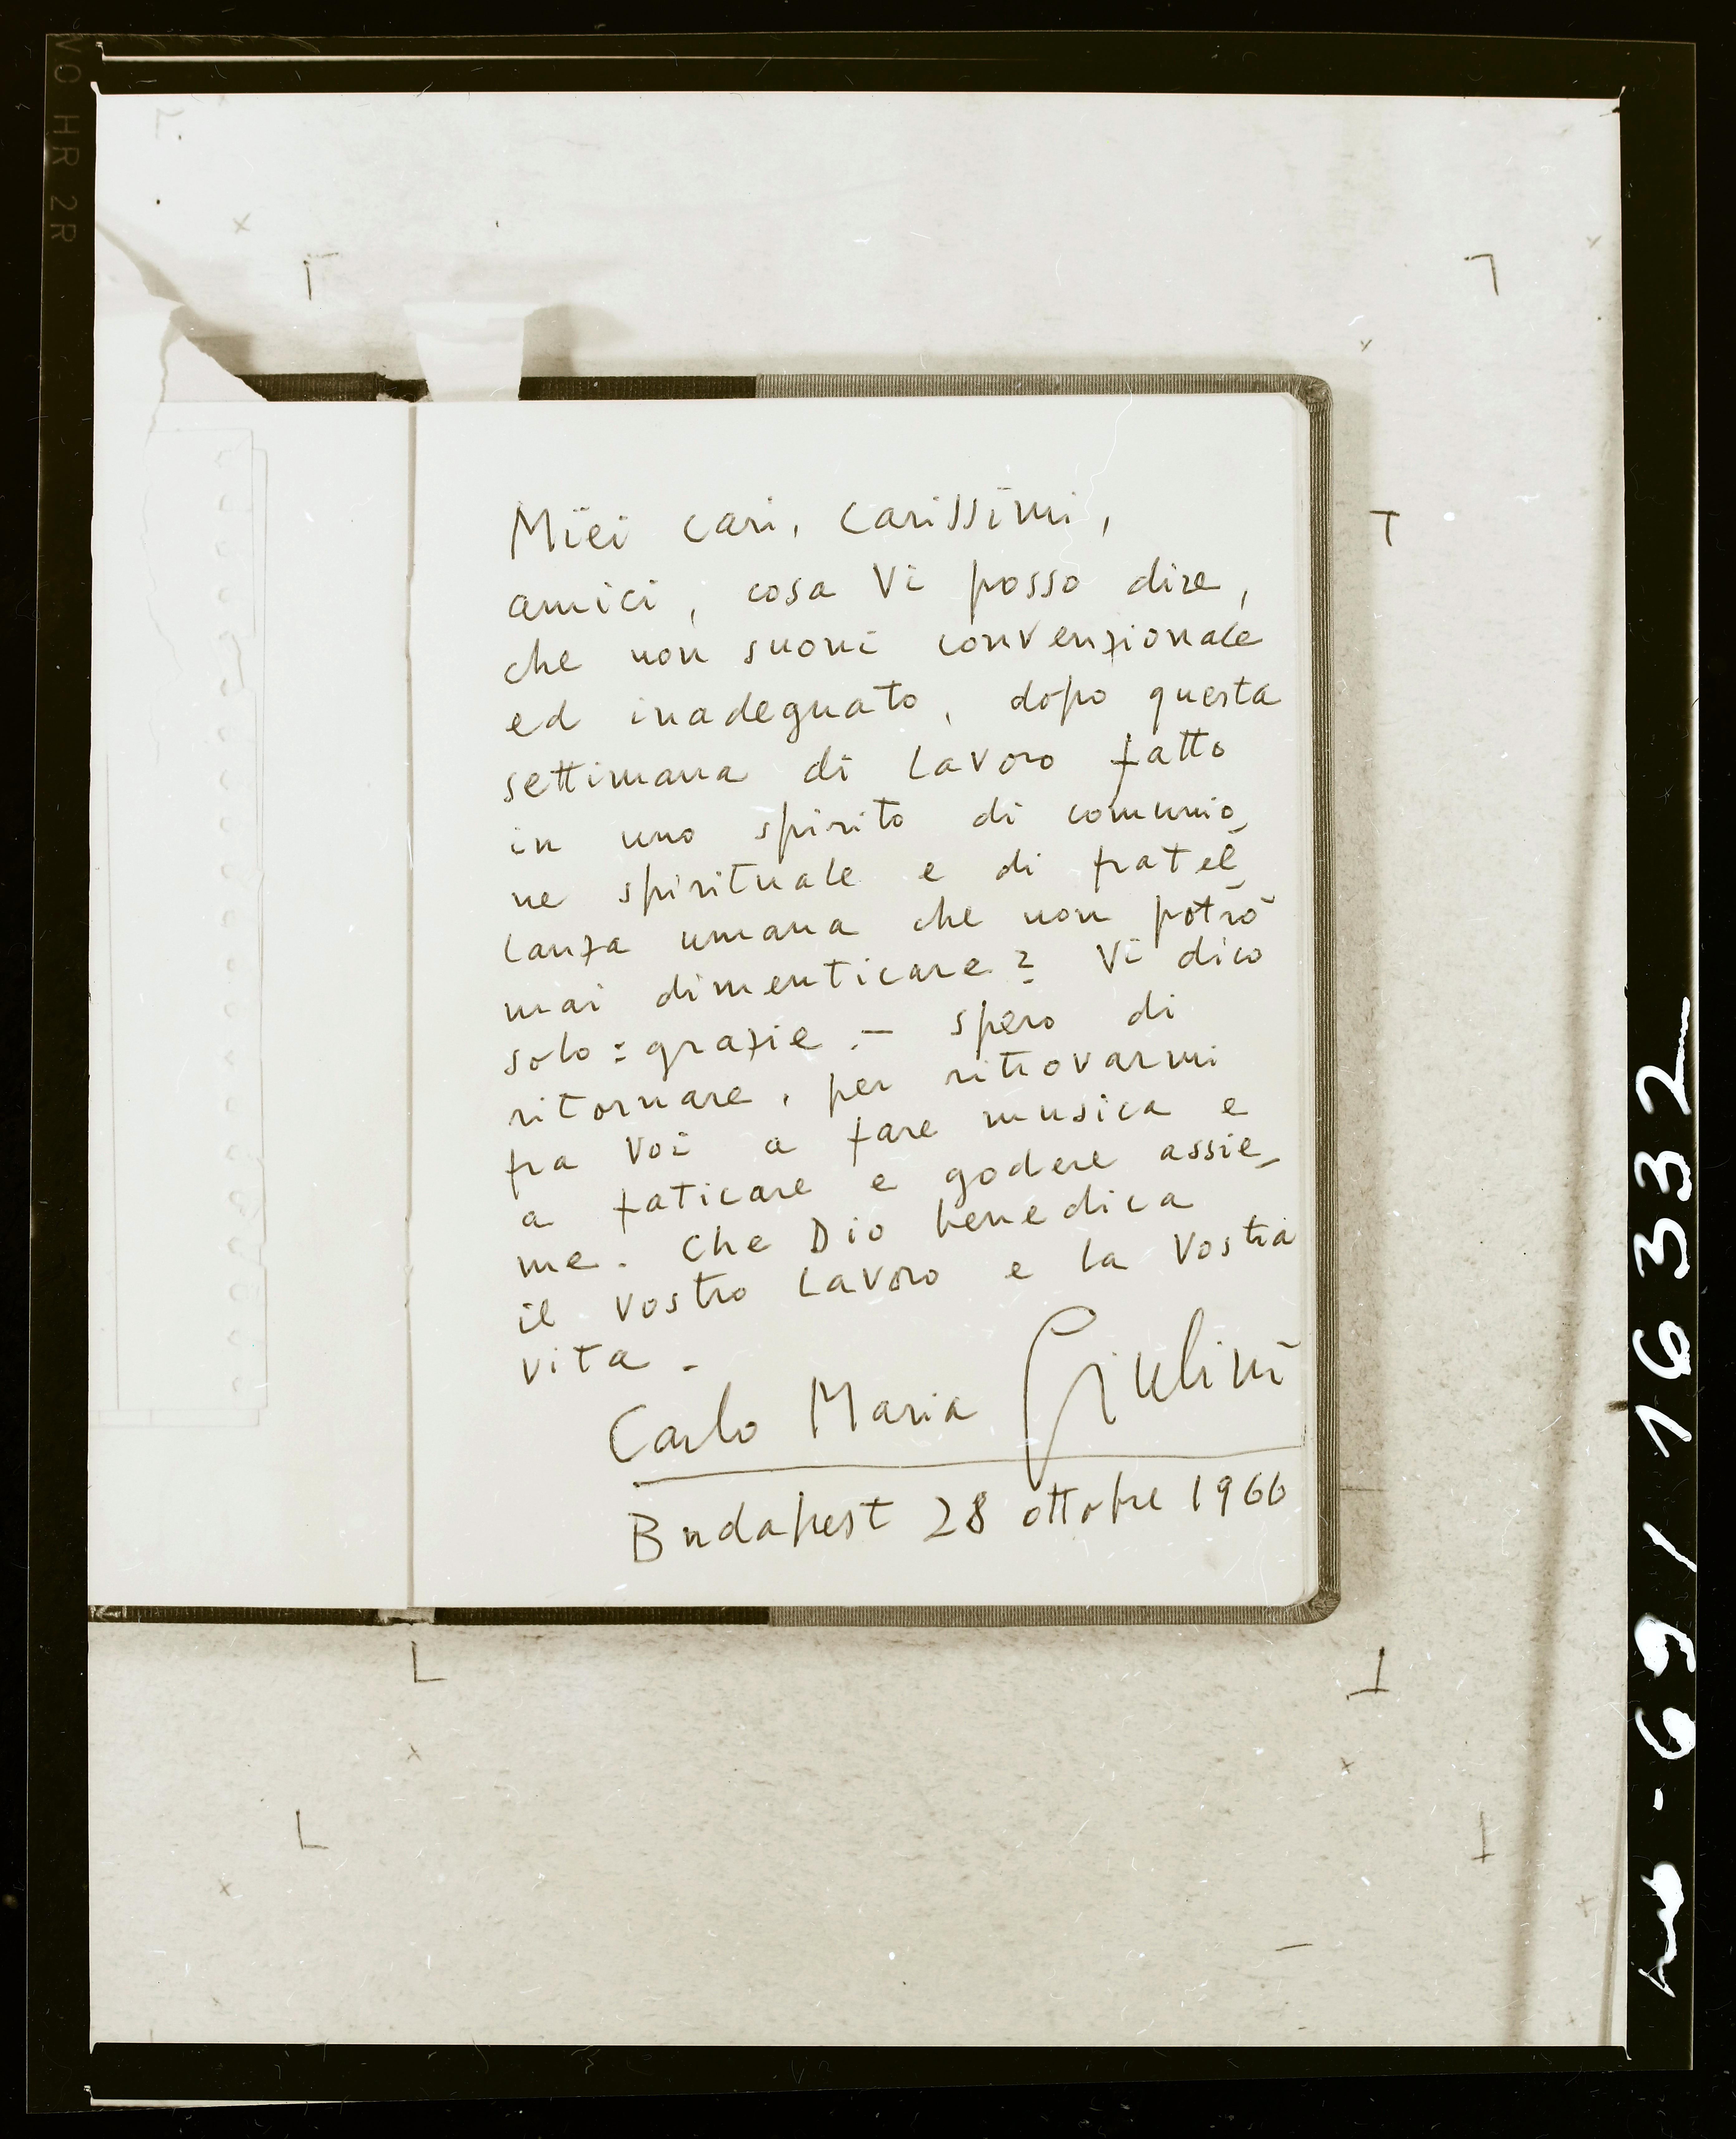 Miei cari, carissimi,
amici, cosa Vi posso dire,
che non suoni convenzionale
ed inadeguato, dopo questa
settimana di lavoro fatto
in uno spirito di comunio-
ne spirituale e di fratel-
lanza umana che non potrò
mai dimenticare? Vi dico
solo: grazie.— spero di
ritornare, per ritrovarmi
fra Voi a fare musica e
a faticare e godere assie-
me. Che Dio benedica
il Vostro lavoro e la Vostra
vita.
Carlo Maria Giulini
Budapest 28 ottobre 1966
VO HR 2R
69/16332